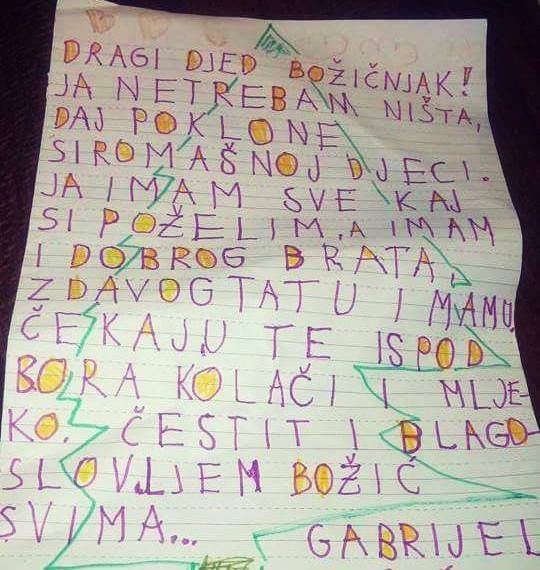 DRAGI DJED BOŽIČNJAK!
JA NETREBAM NIŠTA,
DAJ POKLONE
SIROMAŠNOJ DJECI.
JA IMAM SVE KAJ
SI POŽELIM, A IMAM
I DOBROG BRATA,
ZDAVOG TATU I MAMU.
ČEKAJU TE ISPOD
BORA KOLAČI I MLJE-
KO. ČESTIT I BLAGO-
SLOVLJEN BOŽIČ
SVIMA...
GABRIJEL